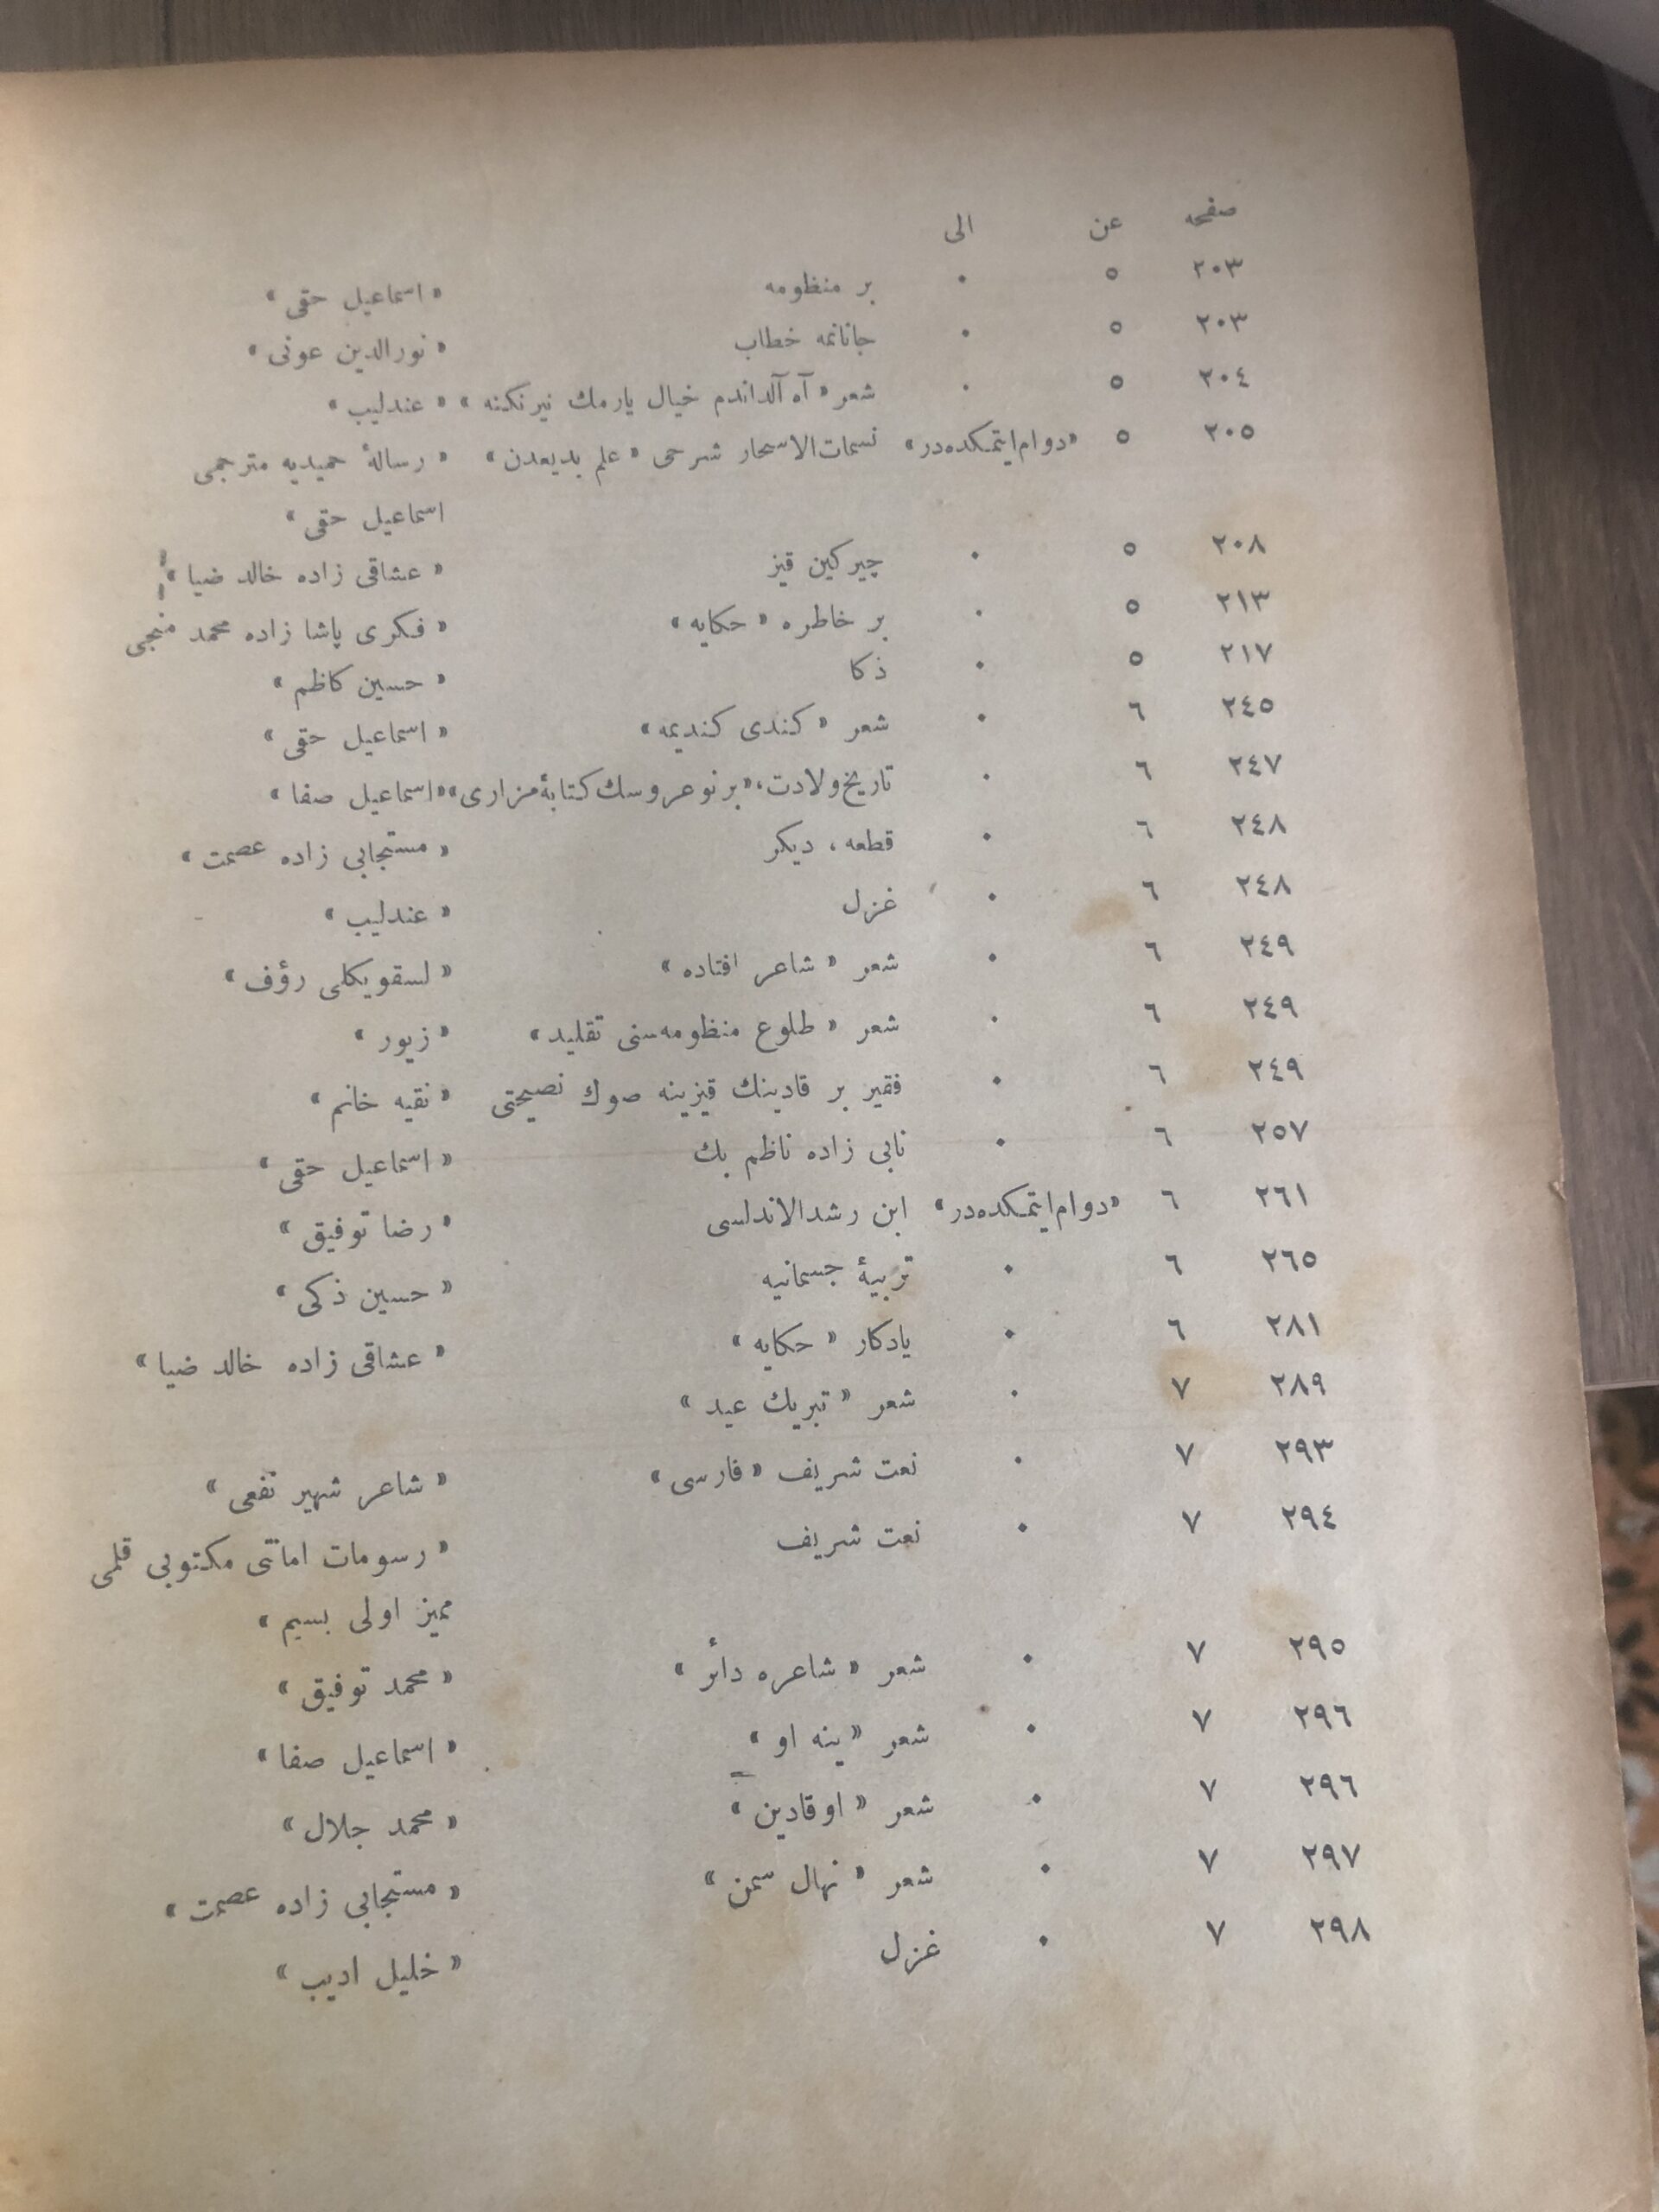 صفحه عن الی
٢٠٣ ٥ ٠ بر منظومه « اسماعیل حقی »
٢٠٣ ٥ ٠ جانانمه خطاب « نورالدین عونی »
٢٠٤ ٥ ٠ شعر « آه آلداندم خیال یارمك نیرنكنه » « عندلیب »
٢٠٥ ٥ «دوام‌ایتمكده‌در» نسمات‌الاسحار شرحی « علم بدیعدن » « رسالهٔ حمیدیه مترجمی
اسماعیل حقی »
٢٠٨ ٥ ٠ چیركین قیز « عشاقی زاده خالد ضیا »
٢١٣ ٥ ٠ بر خاطره « حكایه » « فكری پاشا زاده محمد منجی
٢١٧ ٥ ٠ ذكا « حسین كاظم »
٢٤٥ ٦ ٠ شعر « كندی كندیمه » « اسماعیل حقی »
٢٤٧ ٦ ٠ تاریخ‌ولادت، «بر نوعروسك كتابهٔ مزاری» «اسماعیل صفا »
٢٤٨ ٦ ٠ قطعه ، دیكر « مستجابی زاده عصمت »
٢٤٨ ٦ ٠ غزل « عندلیب »
٢٤٩ ٦ ٠ شعر « شاعر افتاده » « لسقویكلی رؤف »
٢٤٩ ٦ ٠ شعر « طلوع منظومه‌سنی تقلید » « زیور »
٢٤٩ ٦ ٠ فقیر بر قادینك قیزینه صوك نصیحتی « نقیه خانم »
٢٥٧ ٦ ٠ نابی زاده ناظم بك « اسماعیل حقی »
٢٦١ ٦ «دوام‌ایتمكده‌در» ابن رشدالاندلسی « رضا توفیق »
٢٦٥ ٦ ٠ تربیهٔ جسمانیه « حسین ذكی »
٢٨١ ٦ ٠ یادكار « حكایه » « عشاقی زاده خالد ضیا »
٢٨٩ ٧ ٠ شعر « تبریك عید »
٢٩٣ ٧ ٠ نعت شریف « فارسی » « شاعر شهیر نفعی »
٢٩٤ ٧ ٠ نعت شریف « رسومات امانتی مكتوبی قلمی
ممیز اولی بسیم »
٢٩٥ ٧ ٠ شعر « شاعره دائر » « محمد توفیق »
٢٩٦ ٧ ٠ شعر « ینه او » « اسماعیل صفا »
٢٩٦ ٧ ٠ شعر « اوقادین » « محمد جلال »
٢٩٧ ٧ ٠ شعر « نهال سمن » « مستجابی زاده عصمت »
٢٩٨ ٧ ٠ غزل « خلیل ادیب »